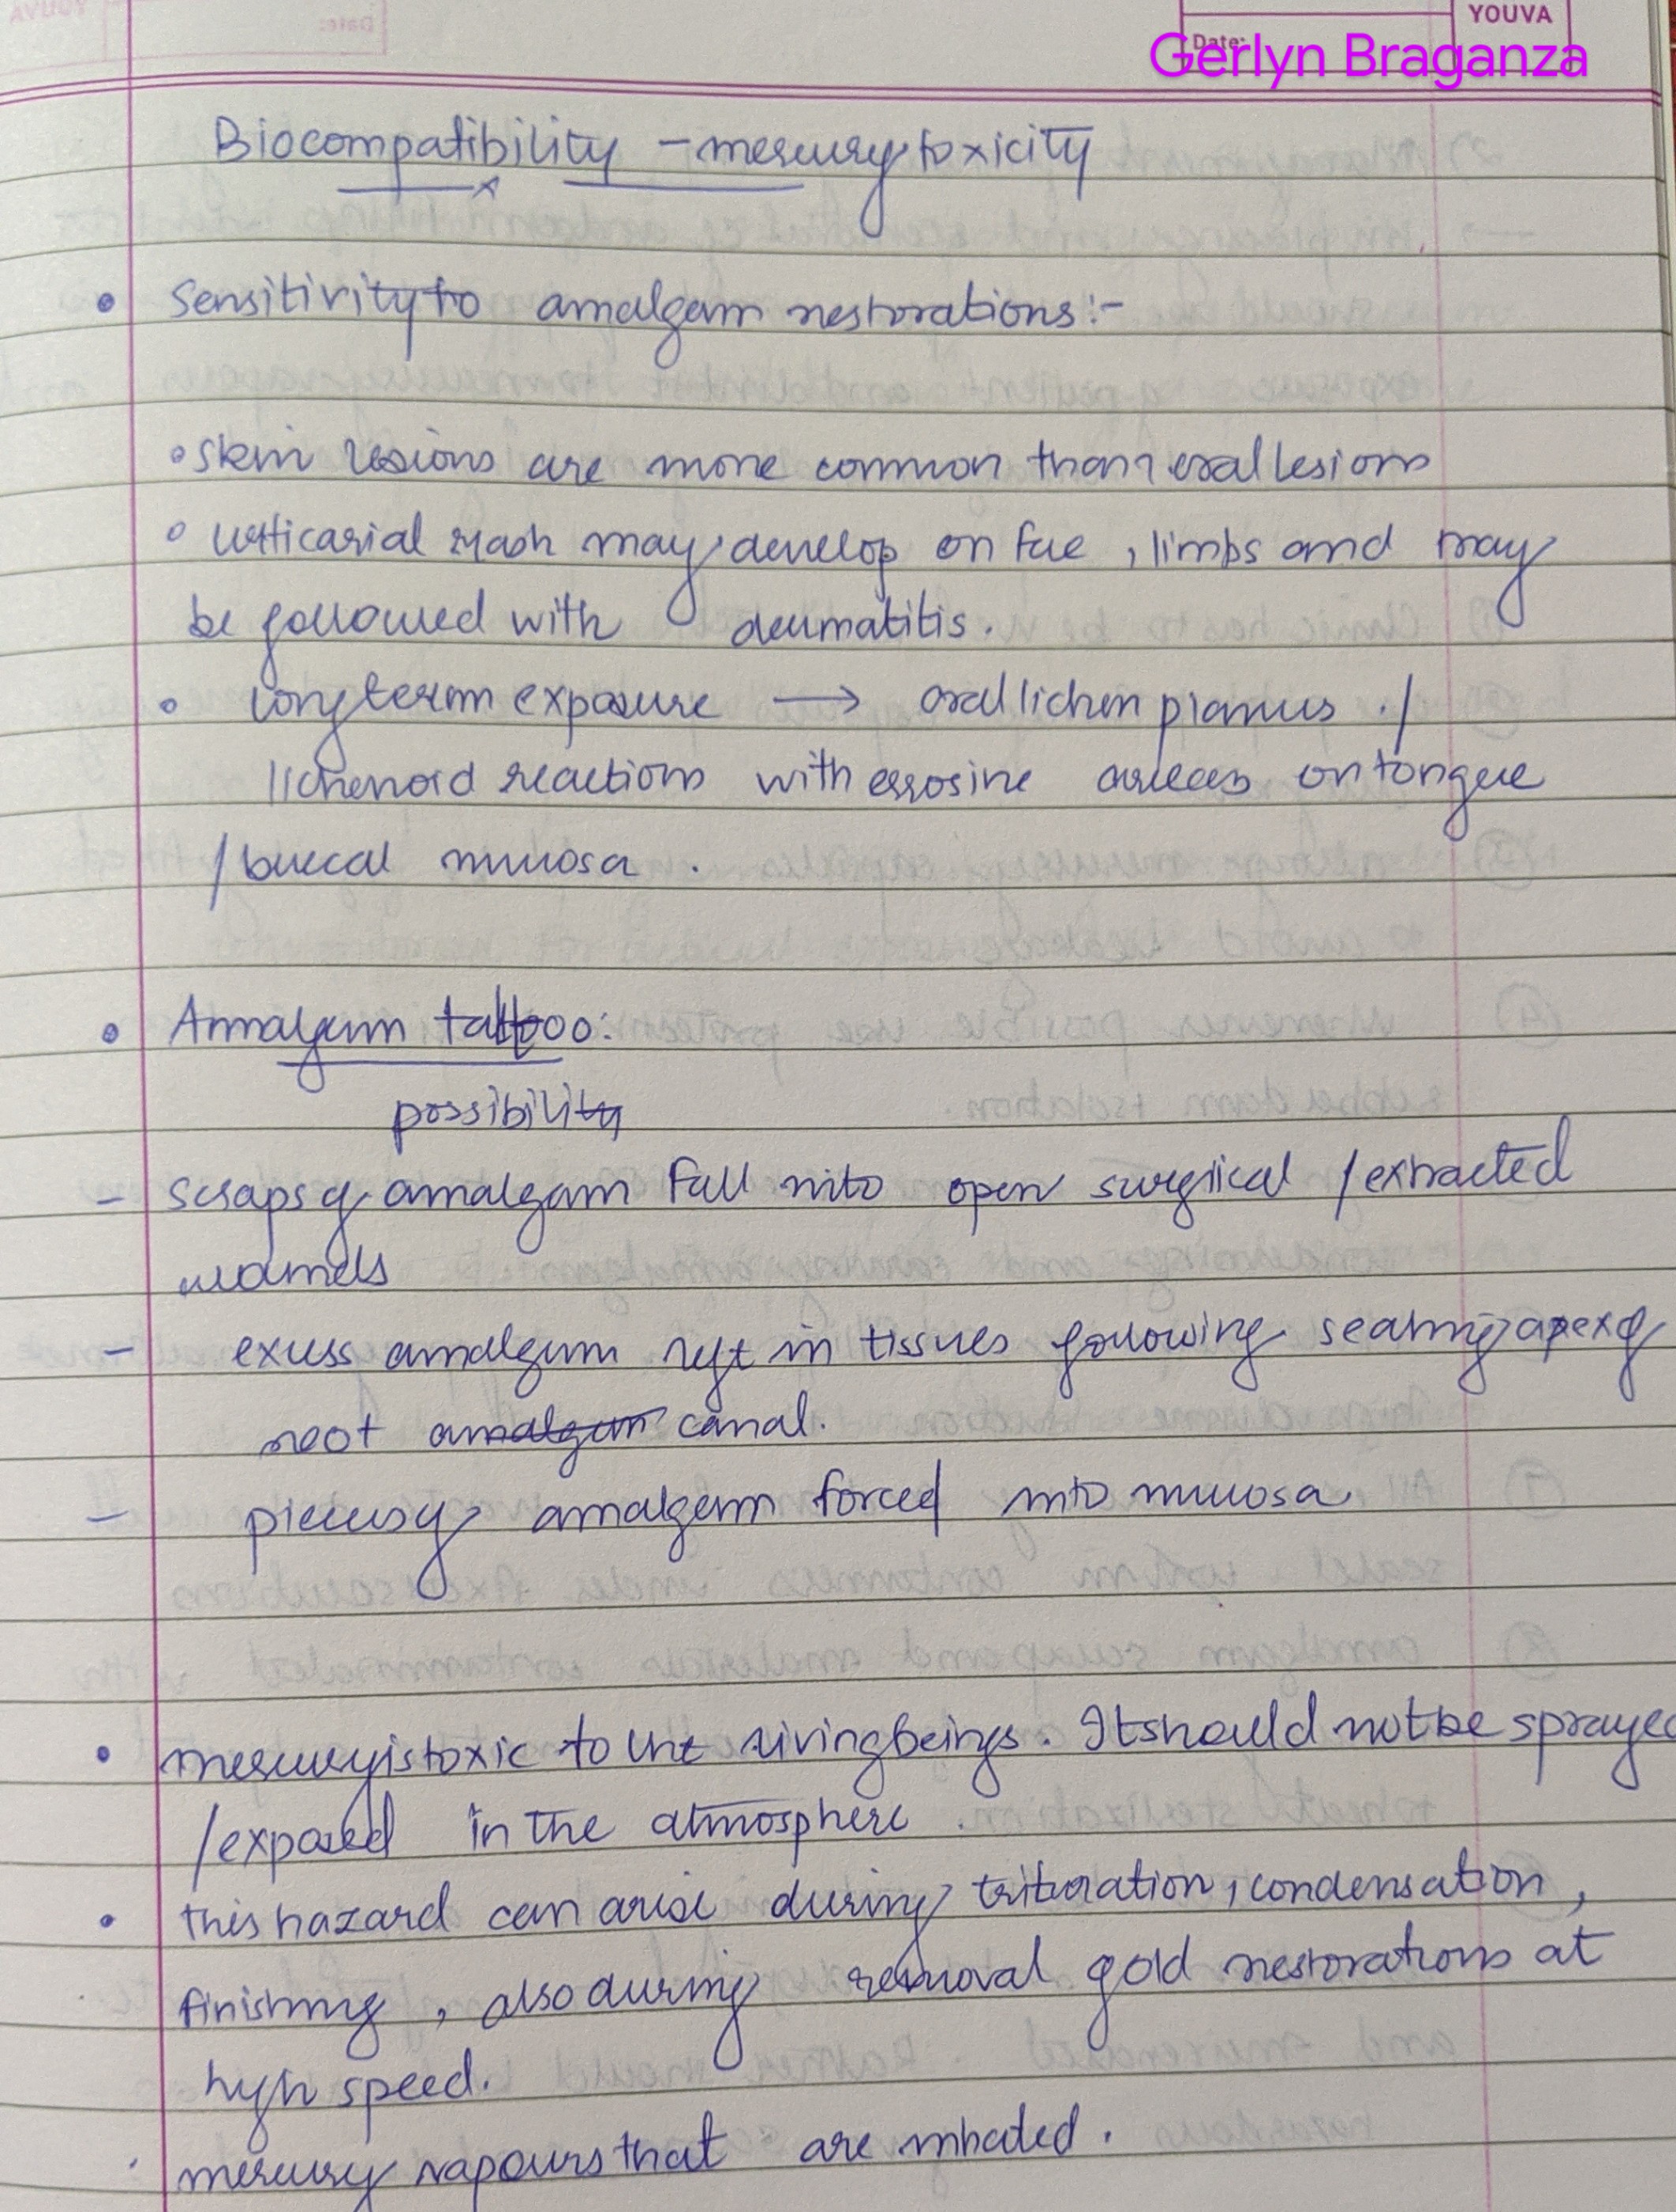 YOUVA
Date:
Gerlyn Braganza
Biocompatibility - mercury toxicity
• Sensitivity to amalgam restorations:-
• skin lesions are more common than oral lesions
• urticarial rash may develop on face, limbs and may
be followed with dermatitis.
• longterm exposure → oral lichen planus. /
lichenoid reactions with errosine areas on tongue
/ buccal mucosa.
• Amalgam tattoo:
possibility
- scraps of amalgam fall into open surgical / extracted
wounds
- excess amalgam left in tissues following sealing apex of
root amalgam canal.
- pieces of amalgam forced into mucosa
• mercury is toxic to the living beings. It should not be sprayed
/ exposed in the atmosphere.
• this hazard can arise during trituration, condensation,
finishing, also during removal gold restorations at
high speed.
• mercury vapours that are inhaled.